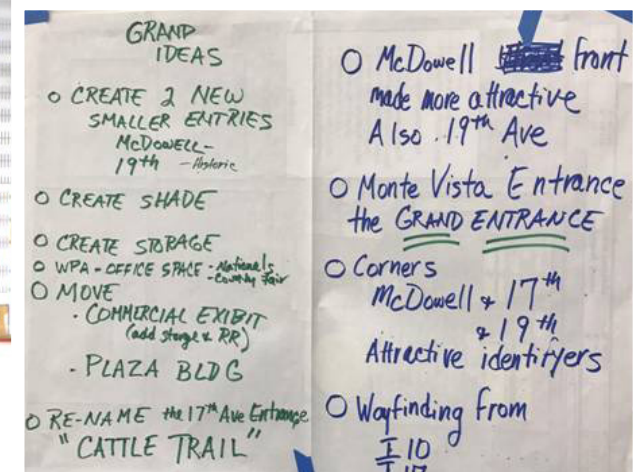 GRAND
IDEAS
o CREATE 2 NEW
SMALLER ENTRIES
McDOWELL-
19th - Historic
o CREATE SHADE
o CREATE STORAGE
o WPA - OFFICE SPACE - Nationals
- County Fair
o MOVE
· COMMERCIAL EXIBIT
(add storge & RR)
· PLAZA BLDG
o RE-NAME the 17th Ave Entrance
"CATTLE TRAIL"
o McDowell front
made more attractive
Also 19th Ave
o Monte Vista Entrance
the GRAND ENTRANCE
o Corners
McDowell & 17th
& 19th
Attractive identifyers
o Wayfinding from
I 10
I 17